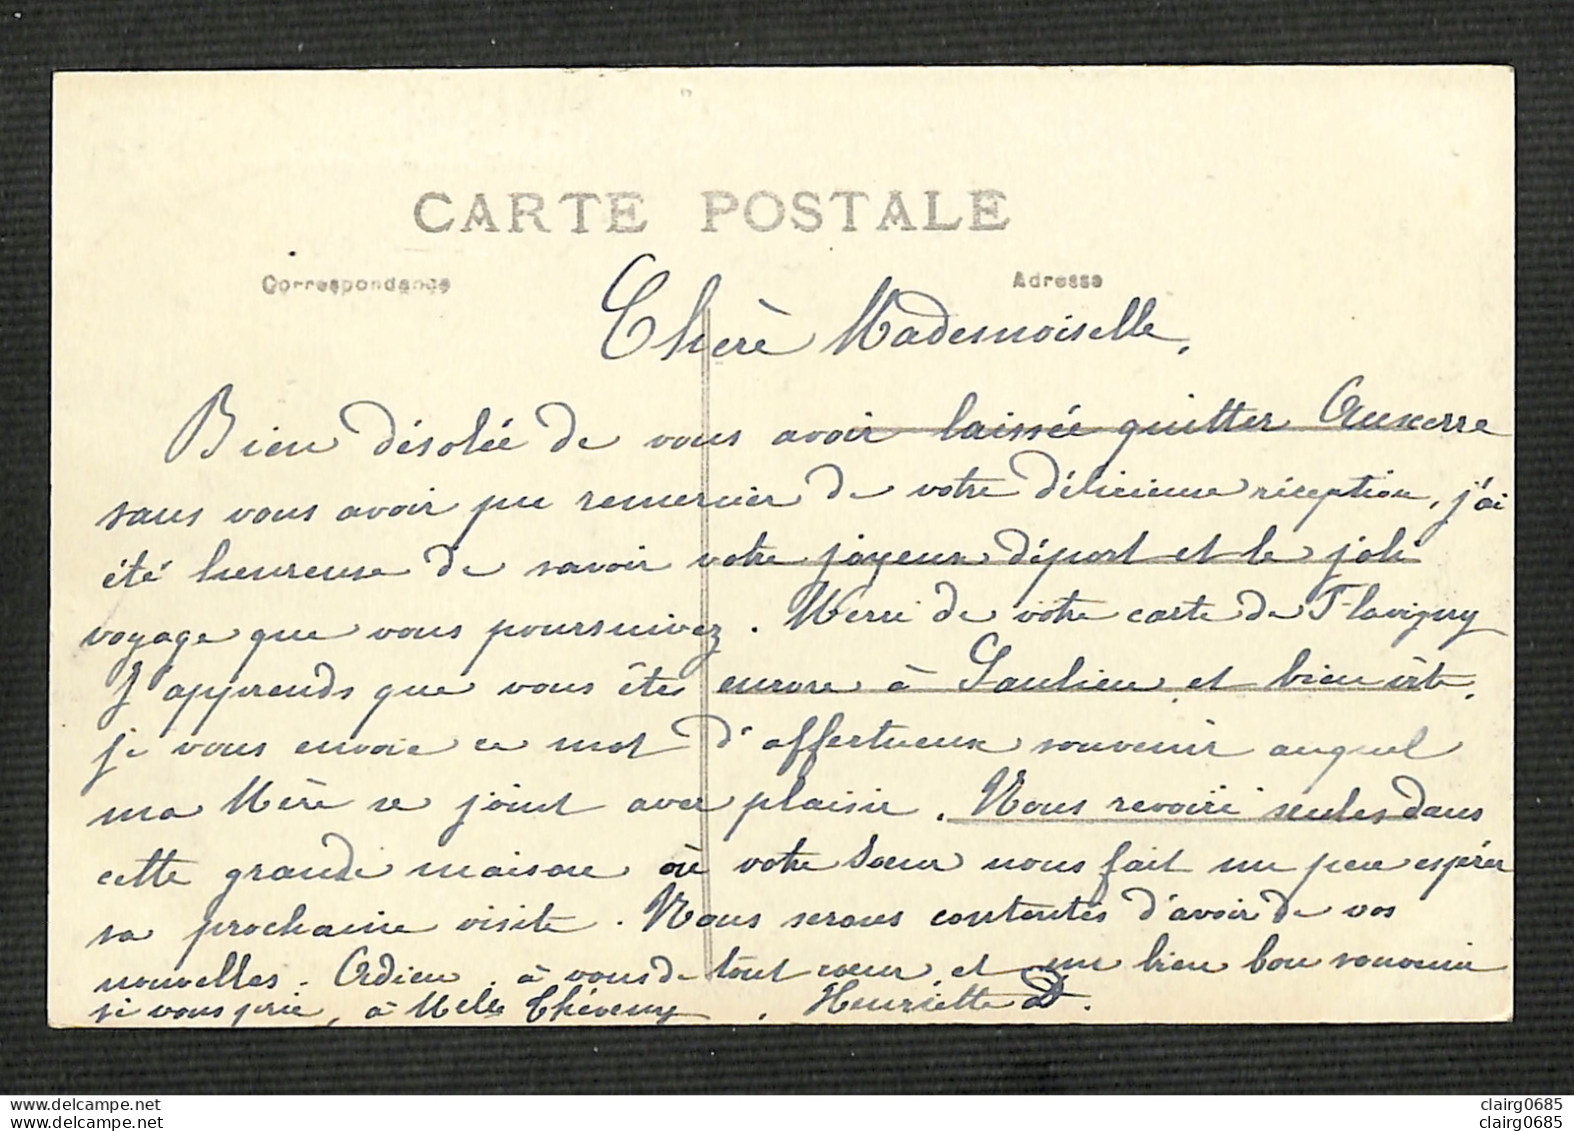 CARTE POSTALE
Correspondance
Adresse
Chère Mademoiselle,
Bien désolée de vous avoir laissée quitter Auxerre
sans vous avoir pu remercier de votre délicieuse réception, j'ai
été heureuse de savoir votre joyeux départ et le joli
voyage que vous poursuivez. Merci de votre carte de Flavigny
J'apprends que vous êtes encore à Saulieu et bien vite,
je vous envoie ce mot d'affectueux souvenir auquel
ma Mère se joint avec plaisir. Nous revoici seules dans
cette grande maison où votre Soeur nous fait un peu espérer
sa prochaine visite. Nous serons contentes d'avoir de vos
nouvelles. Adieu, à vous de tout coeur et un bien bon souvenir
si vous prie, à Melle Théveny. Henriette D.
clairg0685
clairg0685
clairg0685
clairg0685